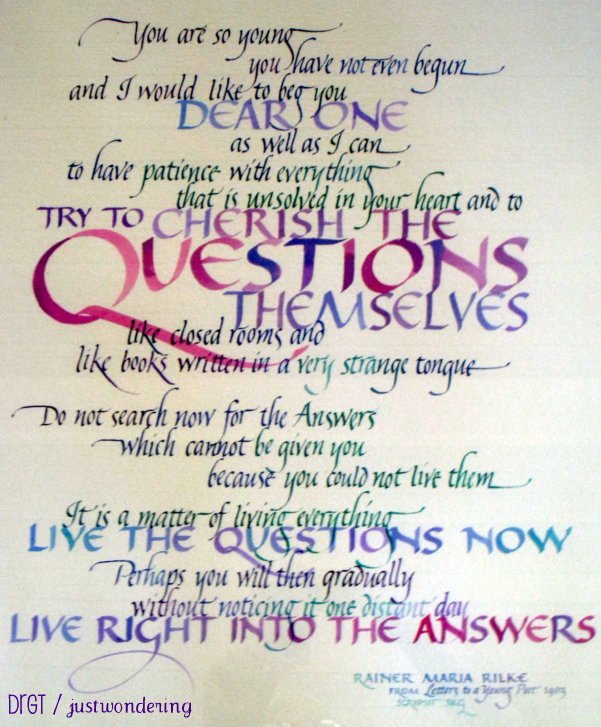 You are so young
you have not even begun
and I would like to beg you
DEAR ONE
as well as I can
to have patience with everything
that is unsolved in your heart and to
TRY TO CHERISH THE
QUESTIONS
THEMSELVES
like closed rooms and
like books written in a very strange tongue
Do not search now for the Answers
which cannot be given you
because you could not live them
It is a matter of living everything
LIVE THE QUESTIONS NOW
Perhaps you will then gradually
without noticing it one distant day
LIVE RIGHT INTO THE ANSWERS
RAINER MARIA RILKE
FROM Letters to a Young Poet 1903
SCRIPSIT SKG
DrGT / justwondering